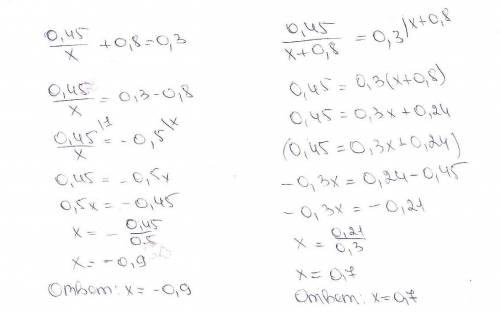 0,45/x + 0,8 = 0,3
0,45/x = 0,3 - 0,8
0,45/x |1 = - 0,5 |x
0,45 = - 0,5x
0,5x = - 0,45
x = - 0,45/0.5
x = - 0,9
Ответ: x = - 0,9
0,45/x+0,8 = 0,3 |x+0,8
0,45 = 0,3(x+0,8)
0,45 = 0,3x + 0,24
(0,45 = 0,3x + 0,24)
- 0,3x = 0,24 - 0,45
- 0,3x = - 0,21
x = 0,21/0,3
x = 0,7
Ответ: x = 0,7